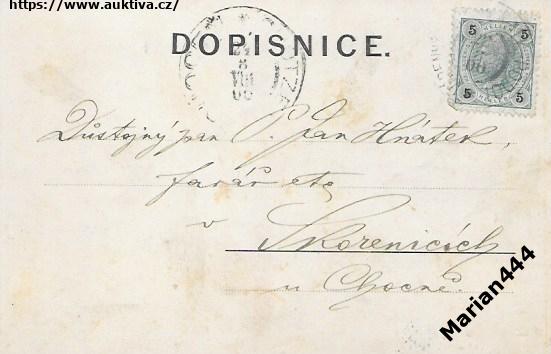 https://www.auktiva.cz/
DOPISNICE.
5 HELLER 5
5 5
24
8
VIII
00
Důstojný pan P. Jan Hnátek,
farář etc
v
Skorenicích
u Chocně.
Marian444